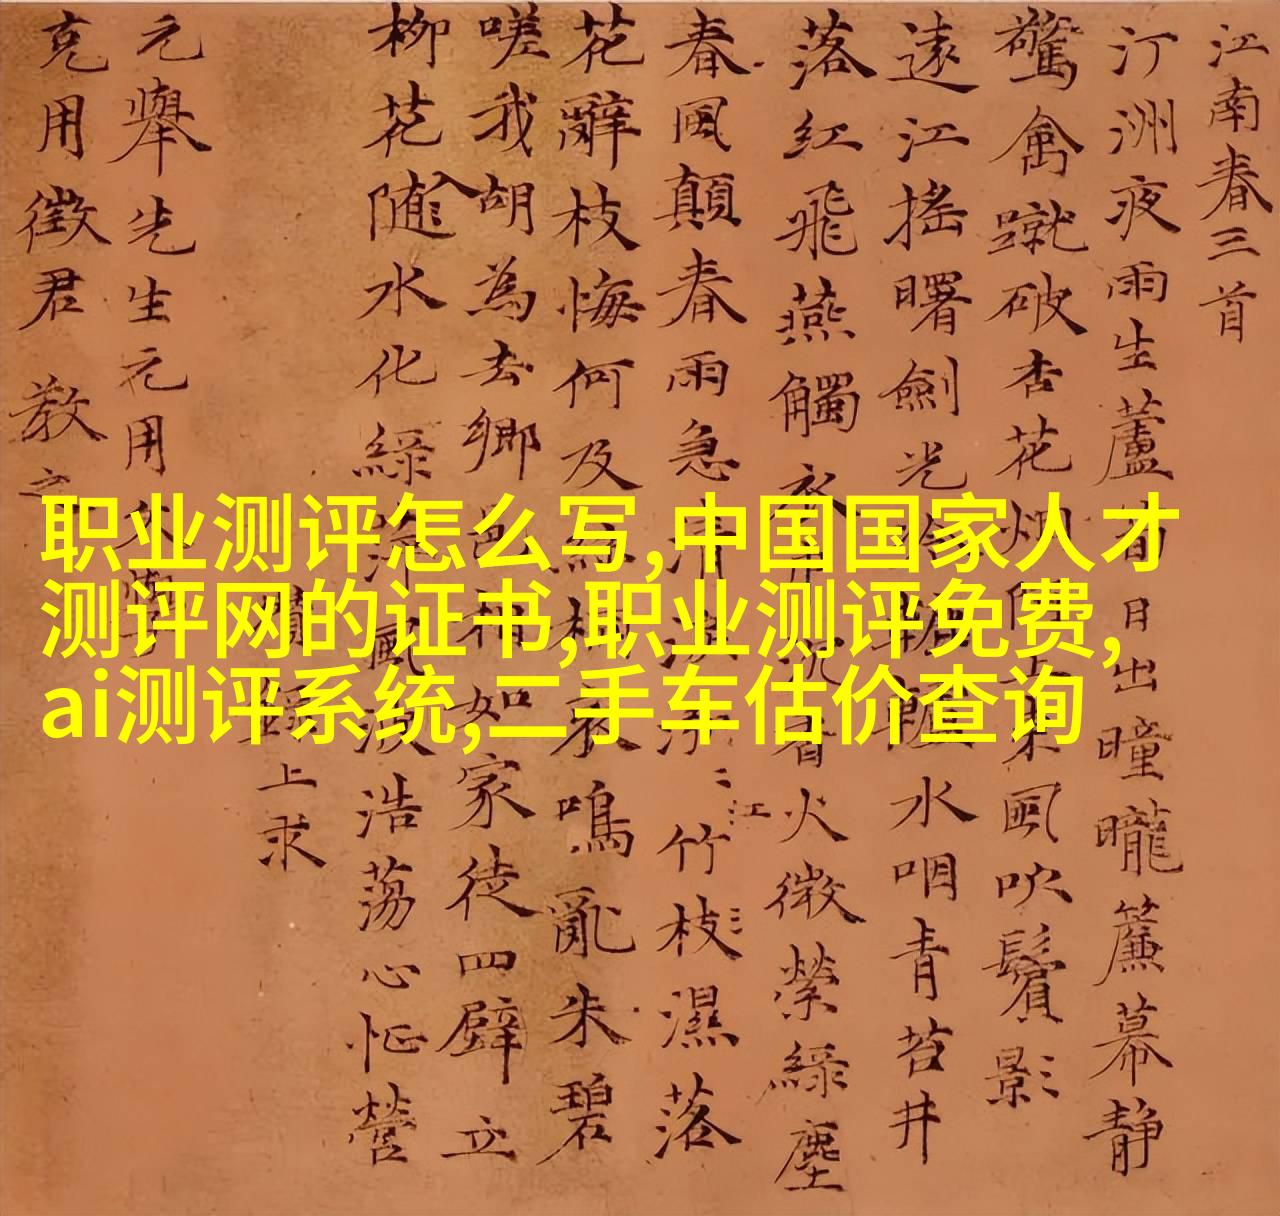 江南春三首
汀洲夜雨生蘆日出曈曨簾幕靜
驚禽蹴破杏花風吹鬢影
遠江搖曙劍光水咽青苔井
落紅飛燕觸火微縈綠塵
春風顛春雨急清江竹枝濕落
花辭枝悔何及鳴亂朱碧
嗟我胡為去鄉相如家徒四壁立
柳花入隨水化綠風波浩蕩心怔營
上求
元舉先生元用
克用徵君 教之
职业测评怎么写,中国国家人才
测评网的证书,职业测评免费,
ai测评系统,二手车估价查询